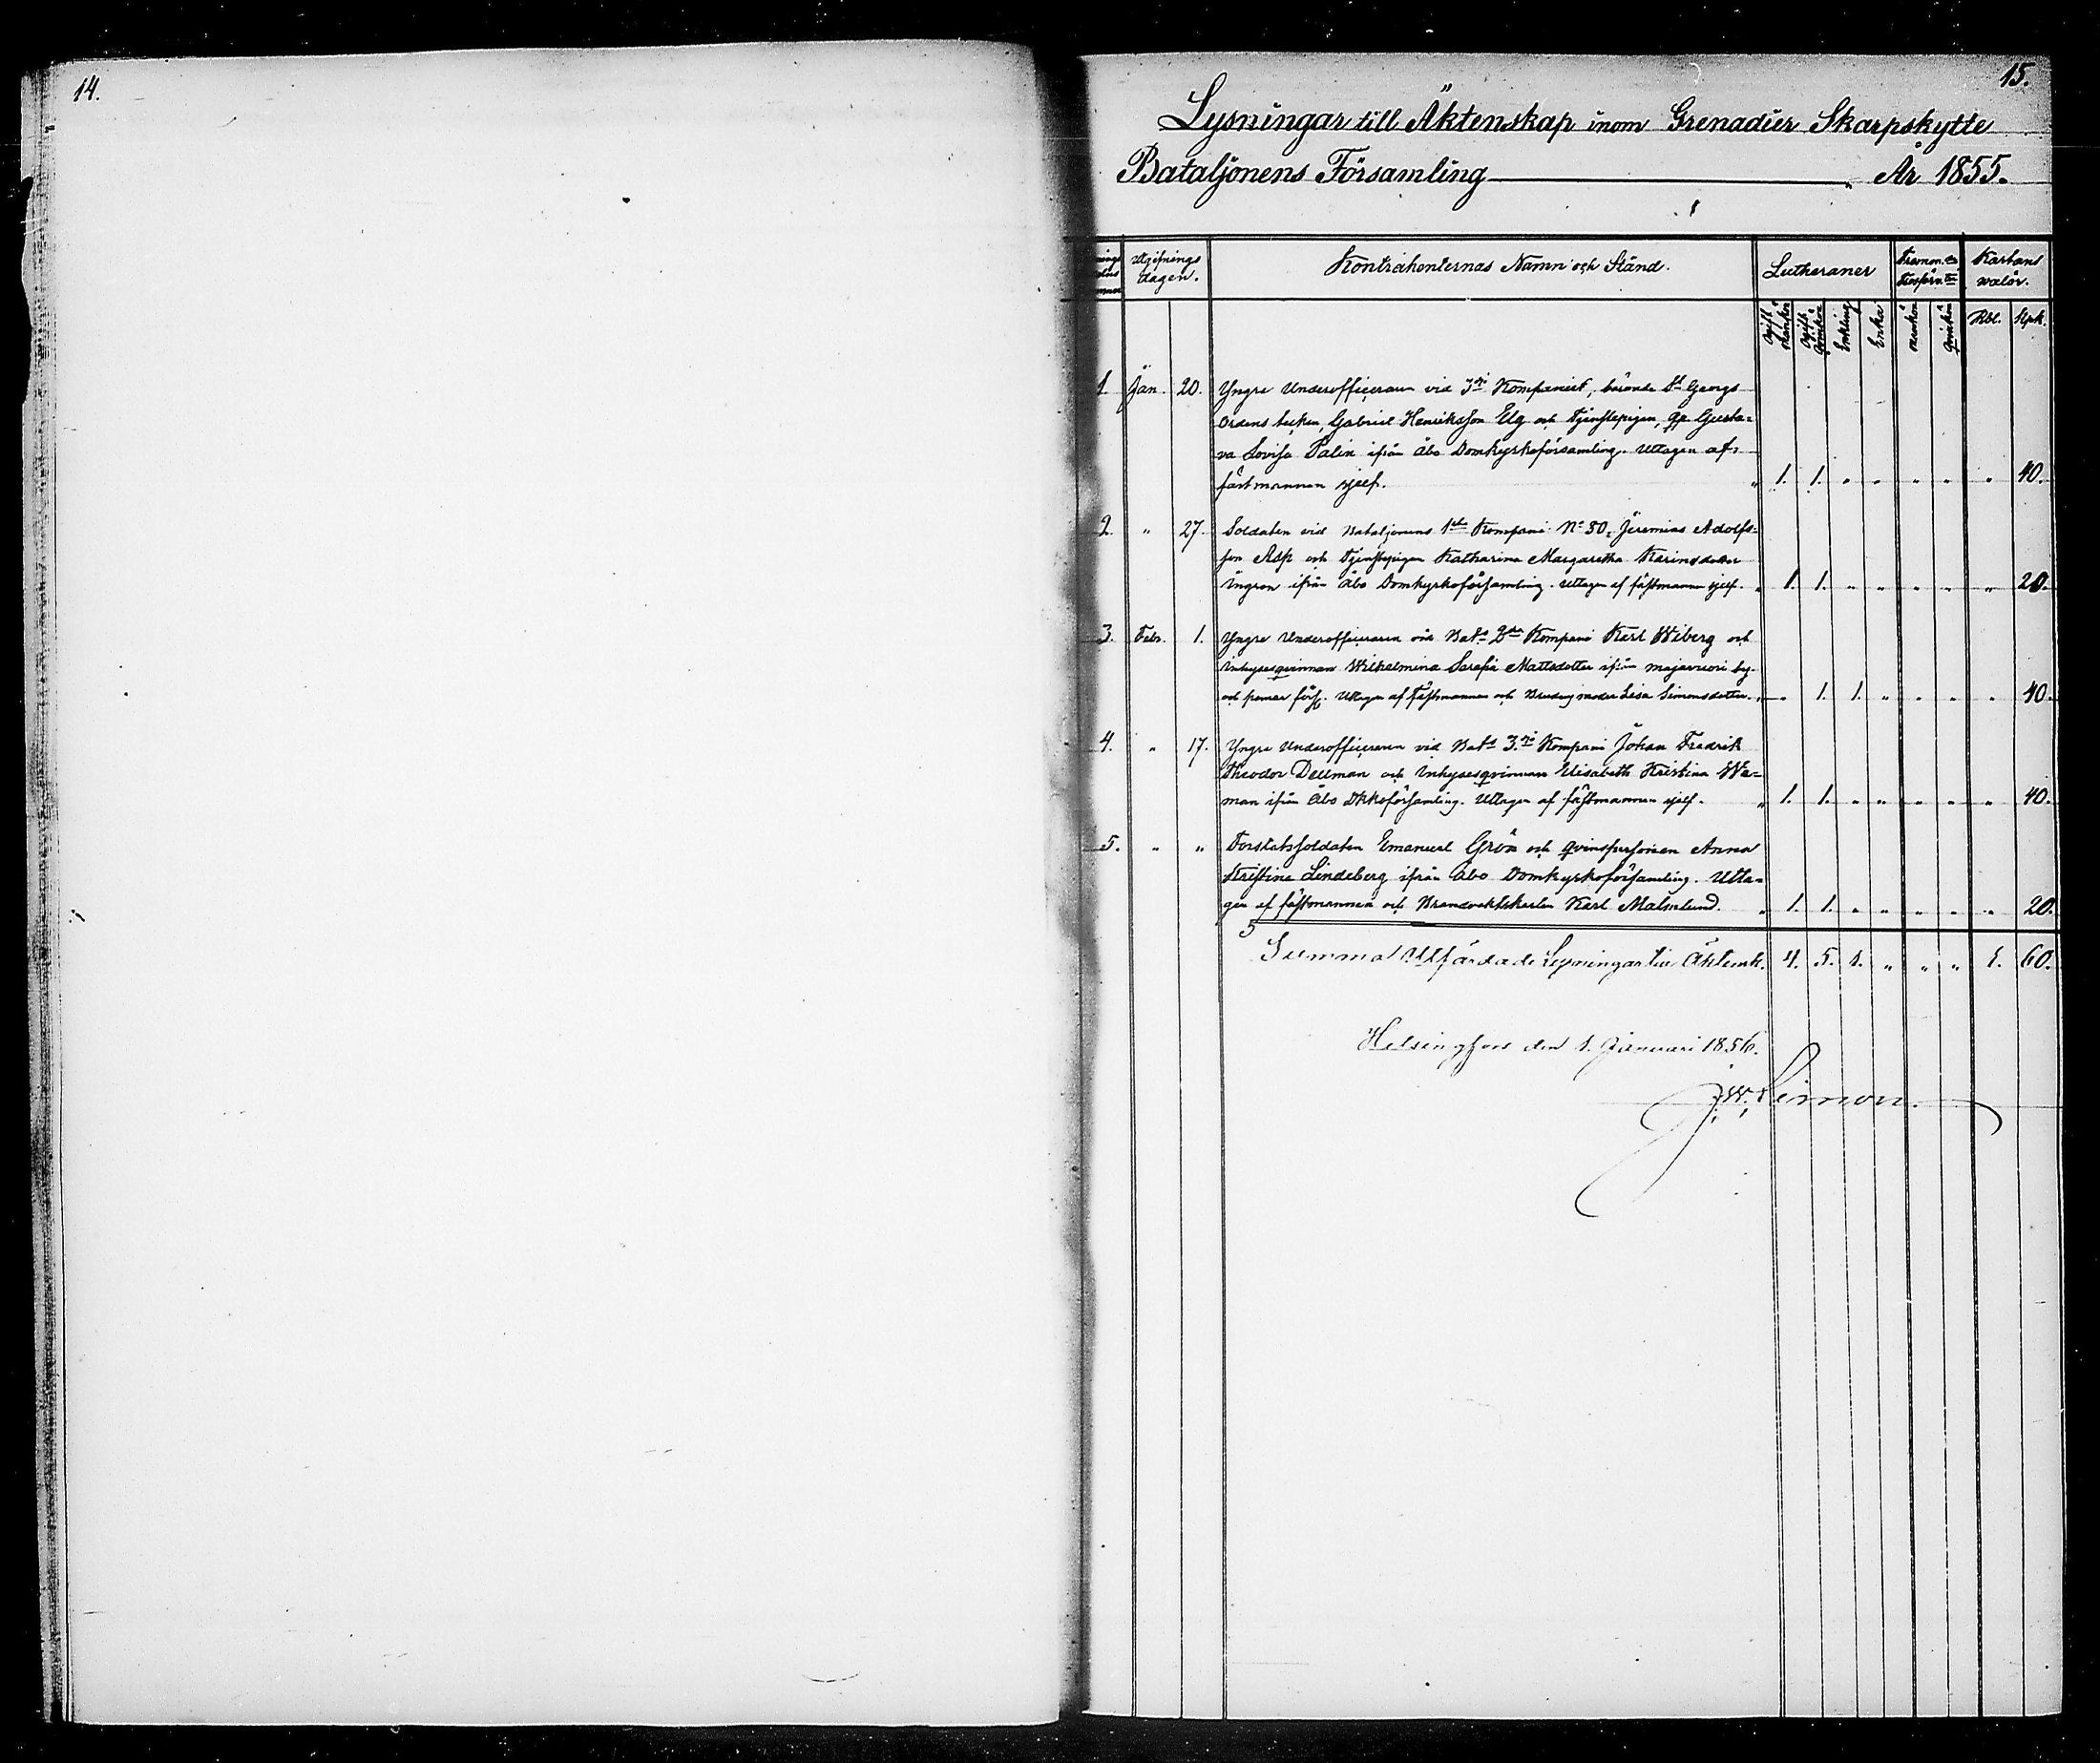 14.
15.
Lysningar till Äktenskap inom Grenadier Skarpskytte
Bataljonens Församling År 1855.
Utgifnings
dagen.
Kontrahenternas Namn och Stånd.
Lutheraner
Kartans
valör.
Ogift
Ogift
Enkling
Enka
mankön
qvinkön
Rbl. Kpk.
1. Jan. 20. Yngre Underofficeraren vid 3dje Kompaniet, bärande St Georgs
Ordens tecken, Gabriel Henriksson Elg och Tjenstepigan, Gusta-
va Lovisa Palin ifrån Åbo Domkyrkoförsamling. Uttagen af
fästmannen sjelf. " 1. 1. " " " " " 40.
2. " 27. Soldaten vid Bataljonens 1sta Kompani No 80, Jeremias Adolfs-
son Asp och Tjenstepigan Katharina Margaretha Karinsdotter
Ingron ifrån Åbo Domkyrkoförsamling. Uttagen af fästmannen sjelf. " 1. 1. " " " " " 20.
3. Febr. 1. Yngre Underofficeraren vid Bats 2dra Kompani Karl Wiberg och
Inhysesqvinnan Wilhelmina Serafia Mattsdotter ifrån by
och förs. Uttagen af Fästmannen och Brudens moder Lisa Simonsdotter. " " 1. 1. " " " " 40.
4. " 17. Yngre Underofficeraren vid Bats 3dje Kompani Johan Fredrik
Theodor Dellman och Inhysesqvinnan Elisabeth Kristina We-
man ifrån Åbo Dkkoförsamling. Uttagen af fästmannen sjelf. " 1. 1. " " " " " 40.
5. " " Forstatssoldaten Emanuel Grön och qvinspersonen Anna
Kristina Lindeberg ifrån Åbo Domkyrkoförsamling. Utta-
gen af fästmannen och Brandvaktskarlen Karl Malmlund. " 1. 1. " " " " " 20.
5
Summa Utfärdade Lysningar till Äktensk. 4. 5. 1. " " " 1. 60.
Helsingfors den 1. Januari 1856.
J. W. Limon.